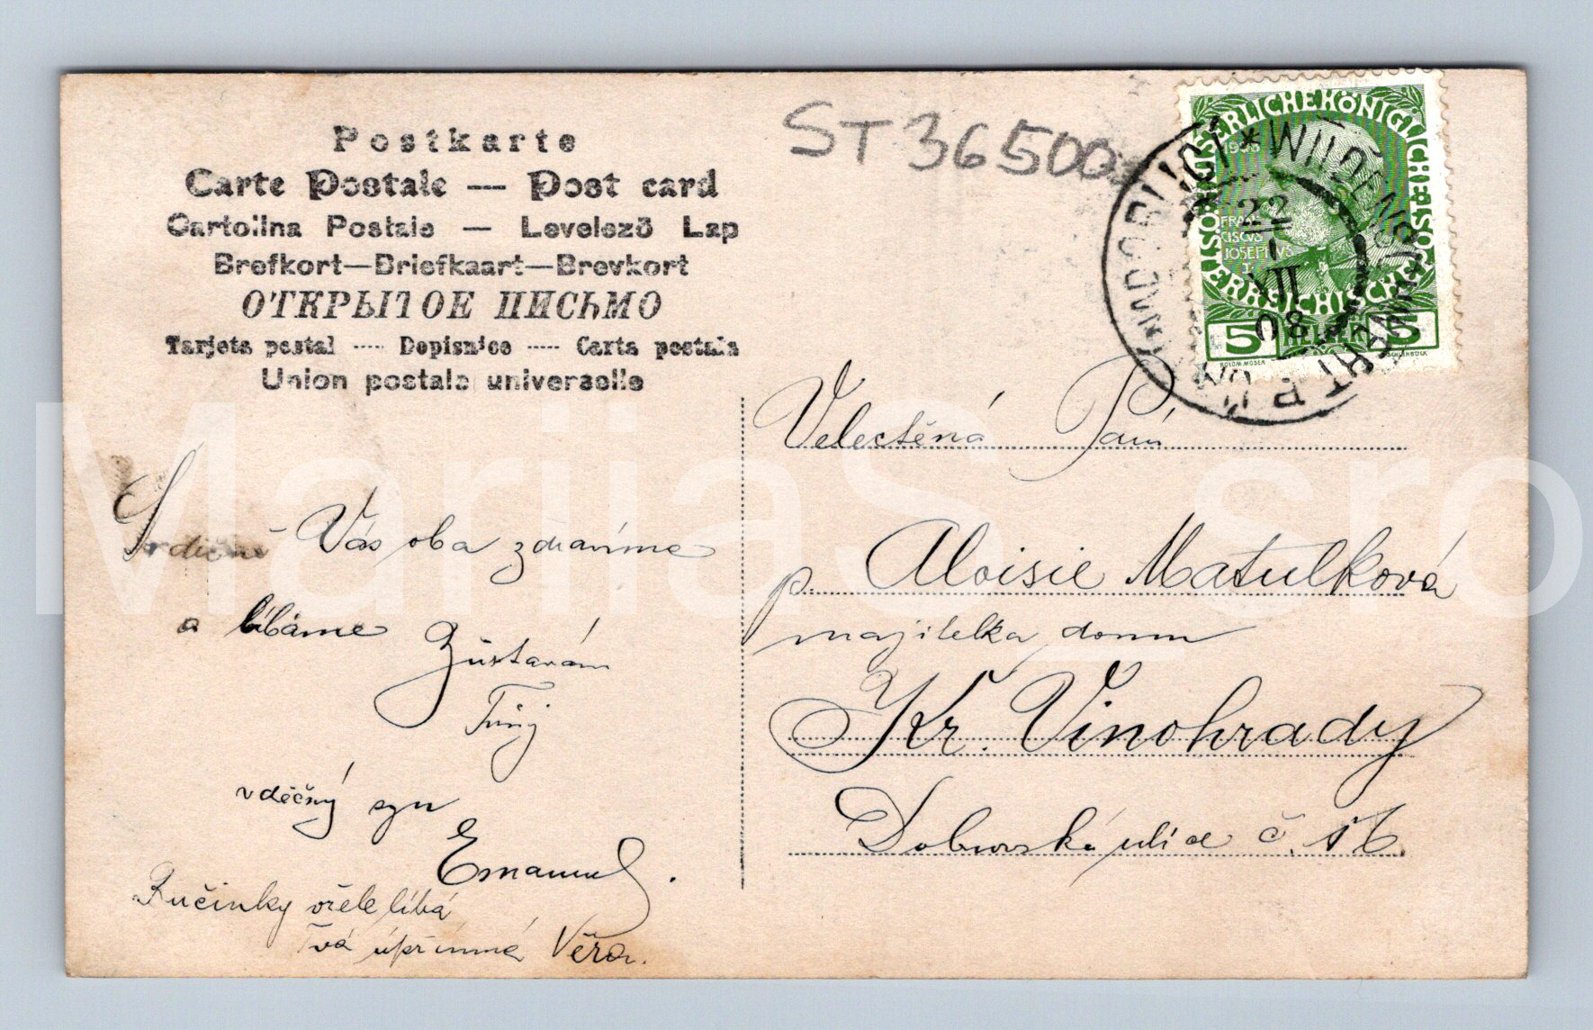 Postkarte
Carte Postale — Post card
Cartolina Postale — Levelező Lap
Brefkort—Briefkaart—Brevkort
ОТКРЫТОЕ ПИСЬМО
Tarjeta postal ---- Dopisnice ---- Carta postala
Union postale universelle
ST 36500
KAISERLICHE KÖNIGLICHE ÖSTERREICHISCHE
1908
FRAN
CISCUS
JOSEPHUS
I.
5 HELLER 5
22
XII
08
Srdečně Vás oba zdravíme
a líbáme Zůstávám
Tvůj
vděčný syn
Emanuel.
Ručinky vřele líbá
Tvá úpřimná Věra.
Velectěná Paní
p. Aloisie Matulková
majitelka domu
Kr. Vinohrady
ulice č. 16.
MarijaS_sro